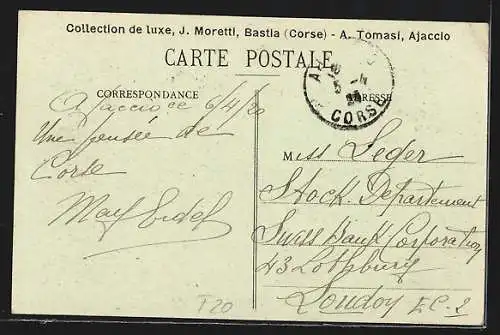 Collection de luxe, J. Moretti, Bastia (Corse) - A. Tomasi, Ajaccio
CARTE POSTALE
CORRESPONDANCE
ADRESSE
CORSE
Ajaccio ce 6/4/20
Une pensée de
Corse
Miss Leger
Stock Departement
Swiss Bank Corporation
43 Lothbury
London E.C-2
T20